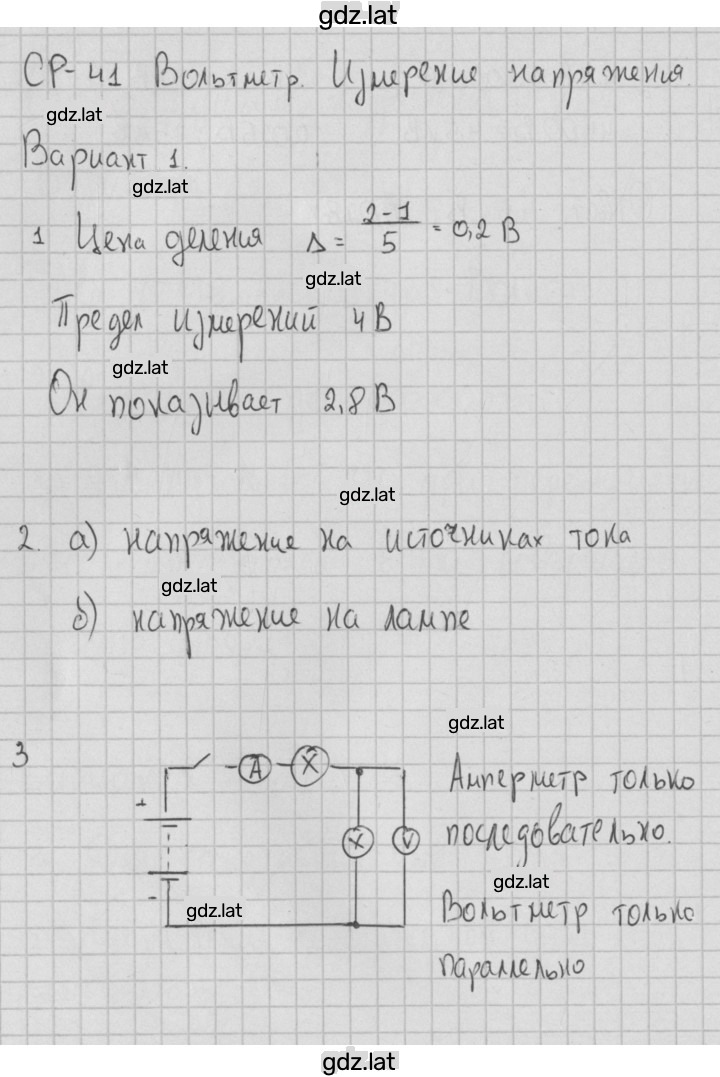 gdz.lat
СР-41 Вольтметр. Измерение напряжения.
gdz.lat
Вариант 1.
gdz.lat
1 Цена деления Δ = 2-1 / 5 = 0,2 В
gdz.lat
Предел измерений 4 В
gdz.lat
Он показывает 2,8 В
gdz.lat
2. а) напряжение на источниках тока
gdz.lat
б) напряжение на лампе
gdz.lat
3
A
Амперметр только
+
последовательно.
V
gdz.lat
-
gdz.lat
Вольтметр только
параллельно
gdz.lat